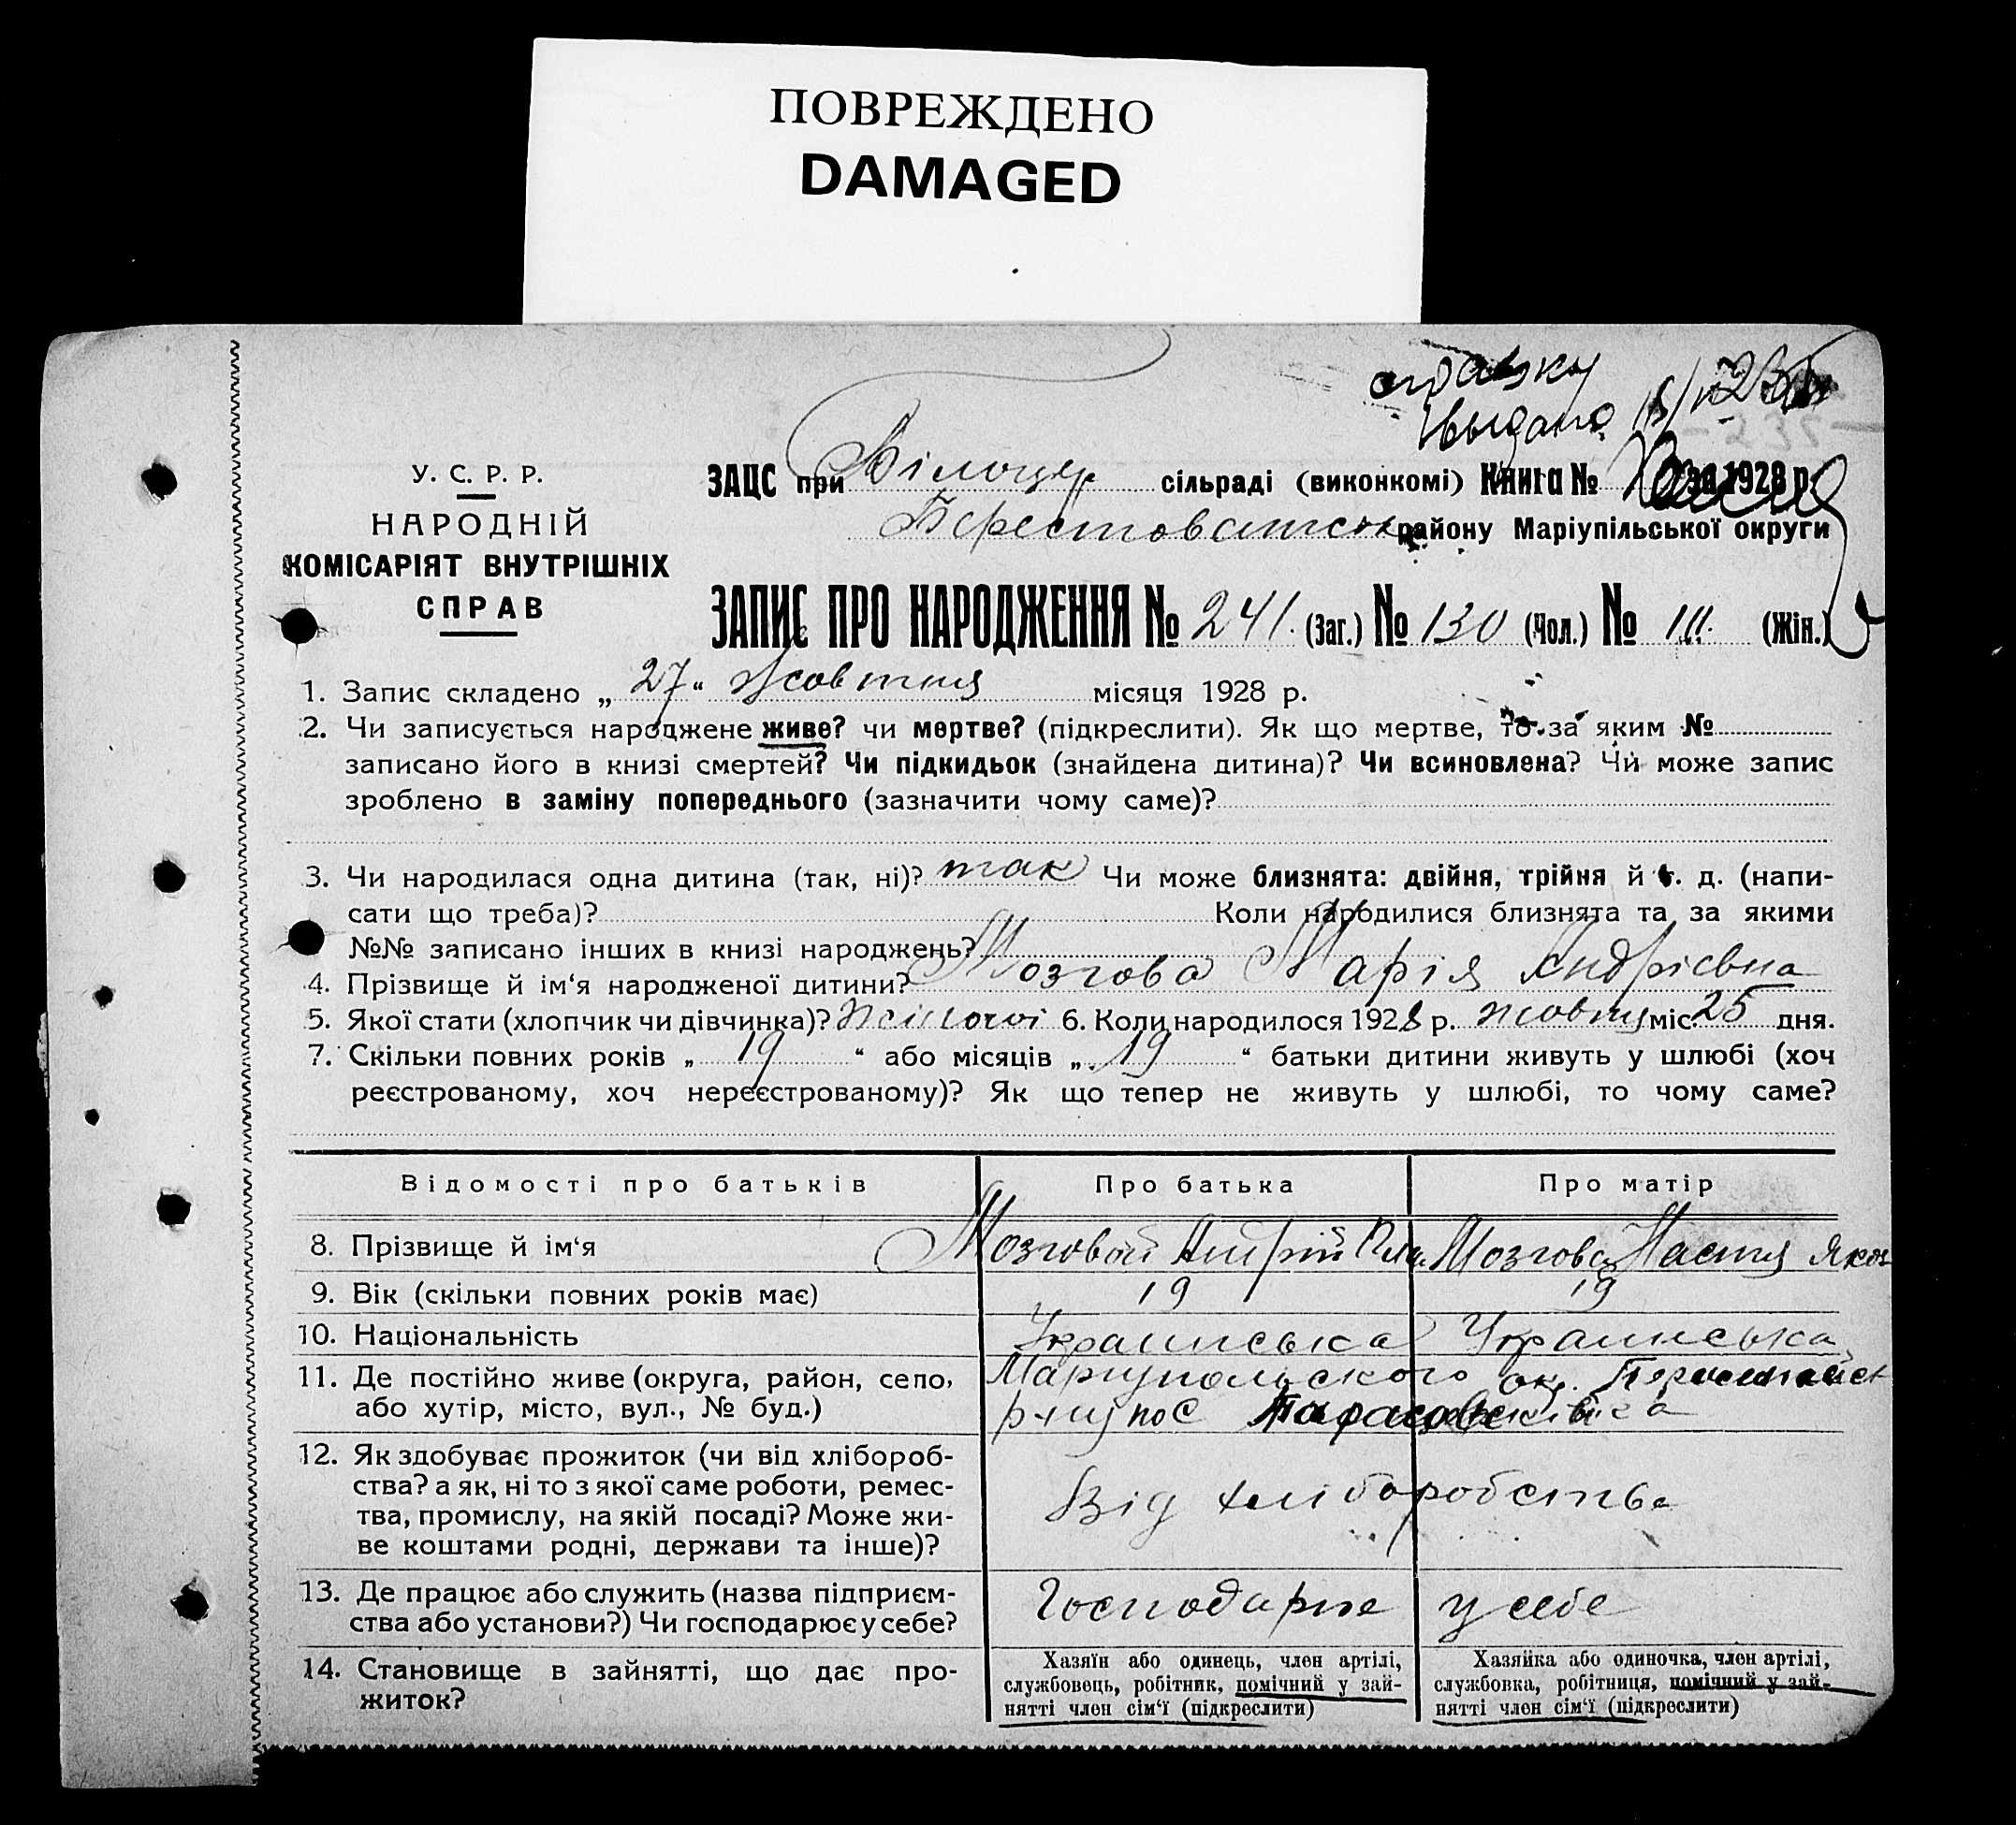 ПОВРЕЖДЕНО
DAMAGED
выдана
У. С. Р. Р.
НАРОДНІЙ
КОМІСАРІЯТ ВНУТРІШНІХ
СПРАВ
ЗАЦС при Білоцер сільраді (виконкомі) Книга № за 1928 р.
Берестоватськ району Маріупільської округи
ЗАПИС ПРО НАРОДЖЕННЯ № 241. (Заг.) № 130 (Чол.) № 111. (Жін.)
1. Запис складено „ 27 “ Жовтня місяця 1928 р.
2. Чи записується народжене живе? чи мертве? (підкреслити). Як що мертве, то за яким №
записано його в книзі смертей? Чи підкидьок (знайдена дитина)? Чи всиновлена? Чи може запис
зроблено в заміну попереднього (зазначити чому саме)?
3. Чи народилася одна дитина (так, ні)? так Чи може близнята: двійня, трійня й т. д. (напи-
сати що треба)? Коли народилися близнята та за якими
№№ записано інших в книзі народжень?
4. Прізвище й ім‘я народженої дитини? Мозгова Марія Андрієвна
5. Якої стати (хлопчик чи дівчинка)? Жіночої 6. Коли народилося 1928 р. жовтня міс. 25 дня.
7. Скільки повних років „ 19 “ або місяців „ 19 “ батьки дитини живуть у шлюбі (хоч
реєстрованому, хоч нереєстрованому)? Як що тепер не живуть у шлюбі, то чому саме?
Відомості про батьків Про батька Про матір
8. Прізвище й ім‘я Мозговой Андрій Мозгова Настя Яков
9. Вік (скільки повних років має) 19 19
10. Національність Украинська Украинська
11. Де постійно живе (округа, район, село, Мариупольского окр.
або хутір, місто, вул., № буд.)
12. Як здобуває прожиток (чи від хлібороб-
ства? а як, ні то з якої саме роботи, ремес-
тва, промислу, на якій посаді? Може жи-
ве коштами родні, держави та інше)?
Від хліборобства
13. Де працює або служить (назва підприєм-
ства або установи?) Чи господарює у себе?
Господарює у себе
14. Становище в зайнятті, що дає про-
житок?
Хазяїн або одинець, член артілі,
службовець, робітник, помічний у зай-
нятті член сім‘ї (підкреслити)
Хазяйка або одиночка, член артілі,
службовка, робітниця, помічний у зай-
нятті член сім‘ї (підкреслити)